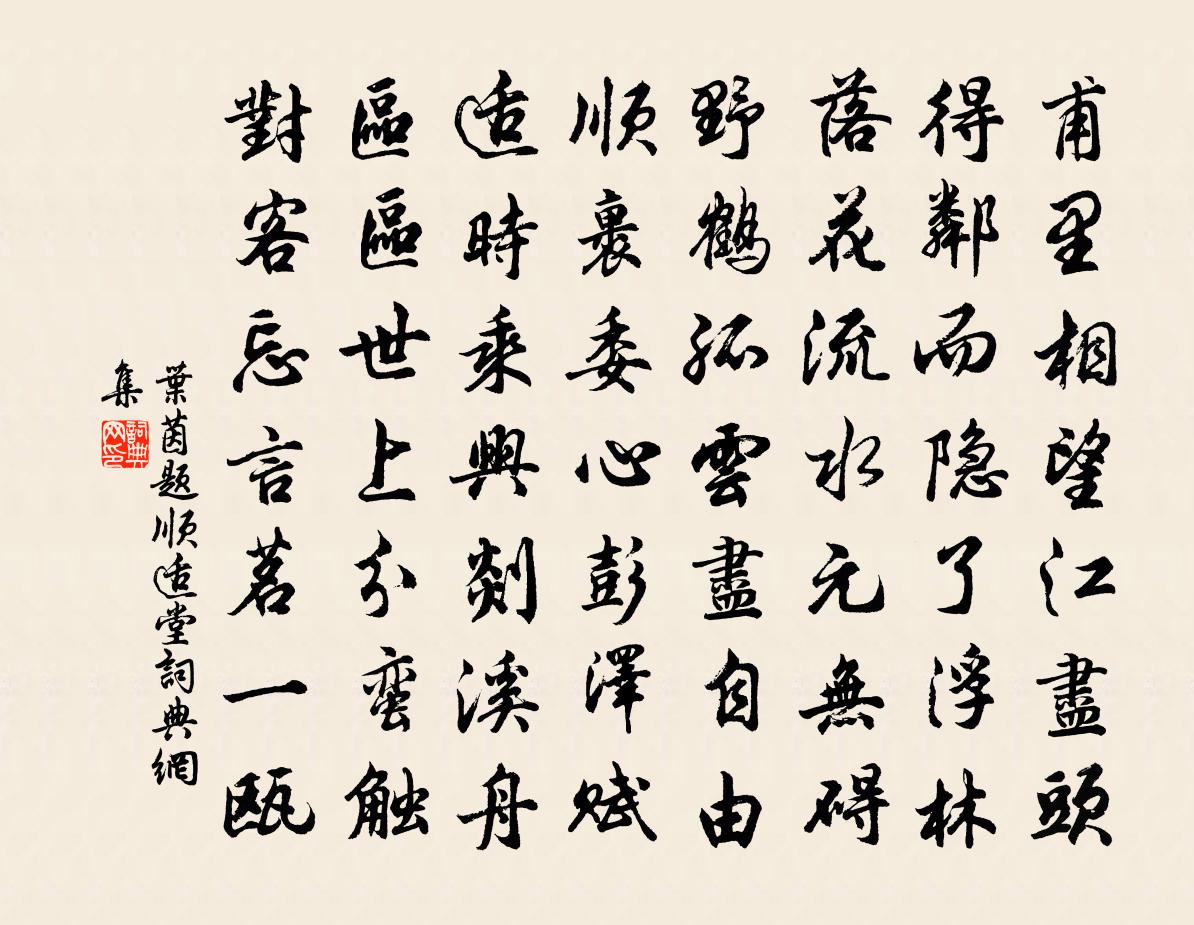 甫里相望江盡頭
得鄰而隐了浮林
落花流水元無碍
野鶴孤雲盡自由
順裏委心彭澤赋
适時乘興剡溪舟
區區世上分蛮触
對客忘言茗一瓯
葉茵題順适堂詞典網
集
詞典网印